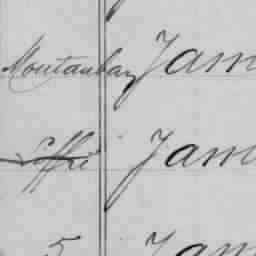 Montauban Jam
Jam
5 Jam